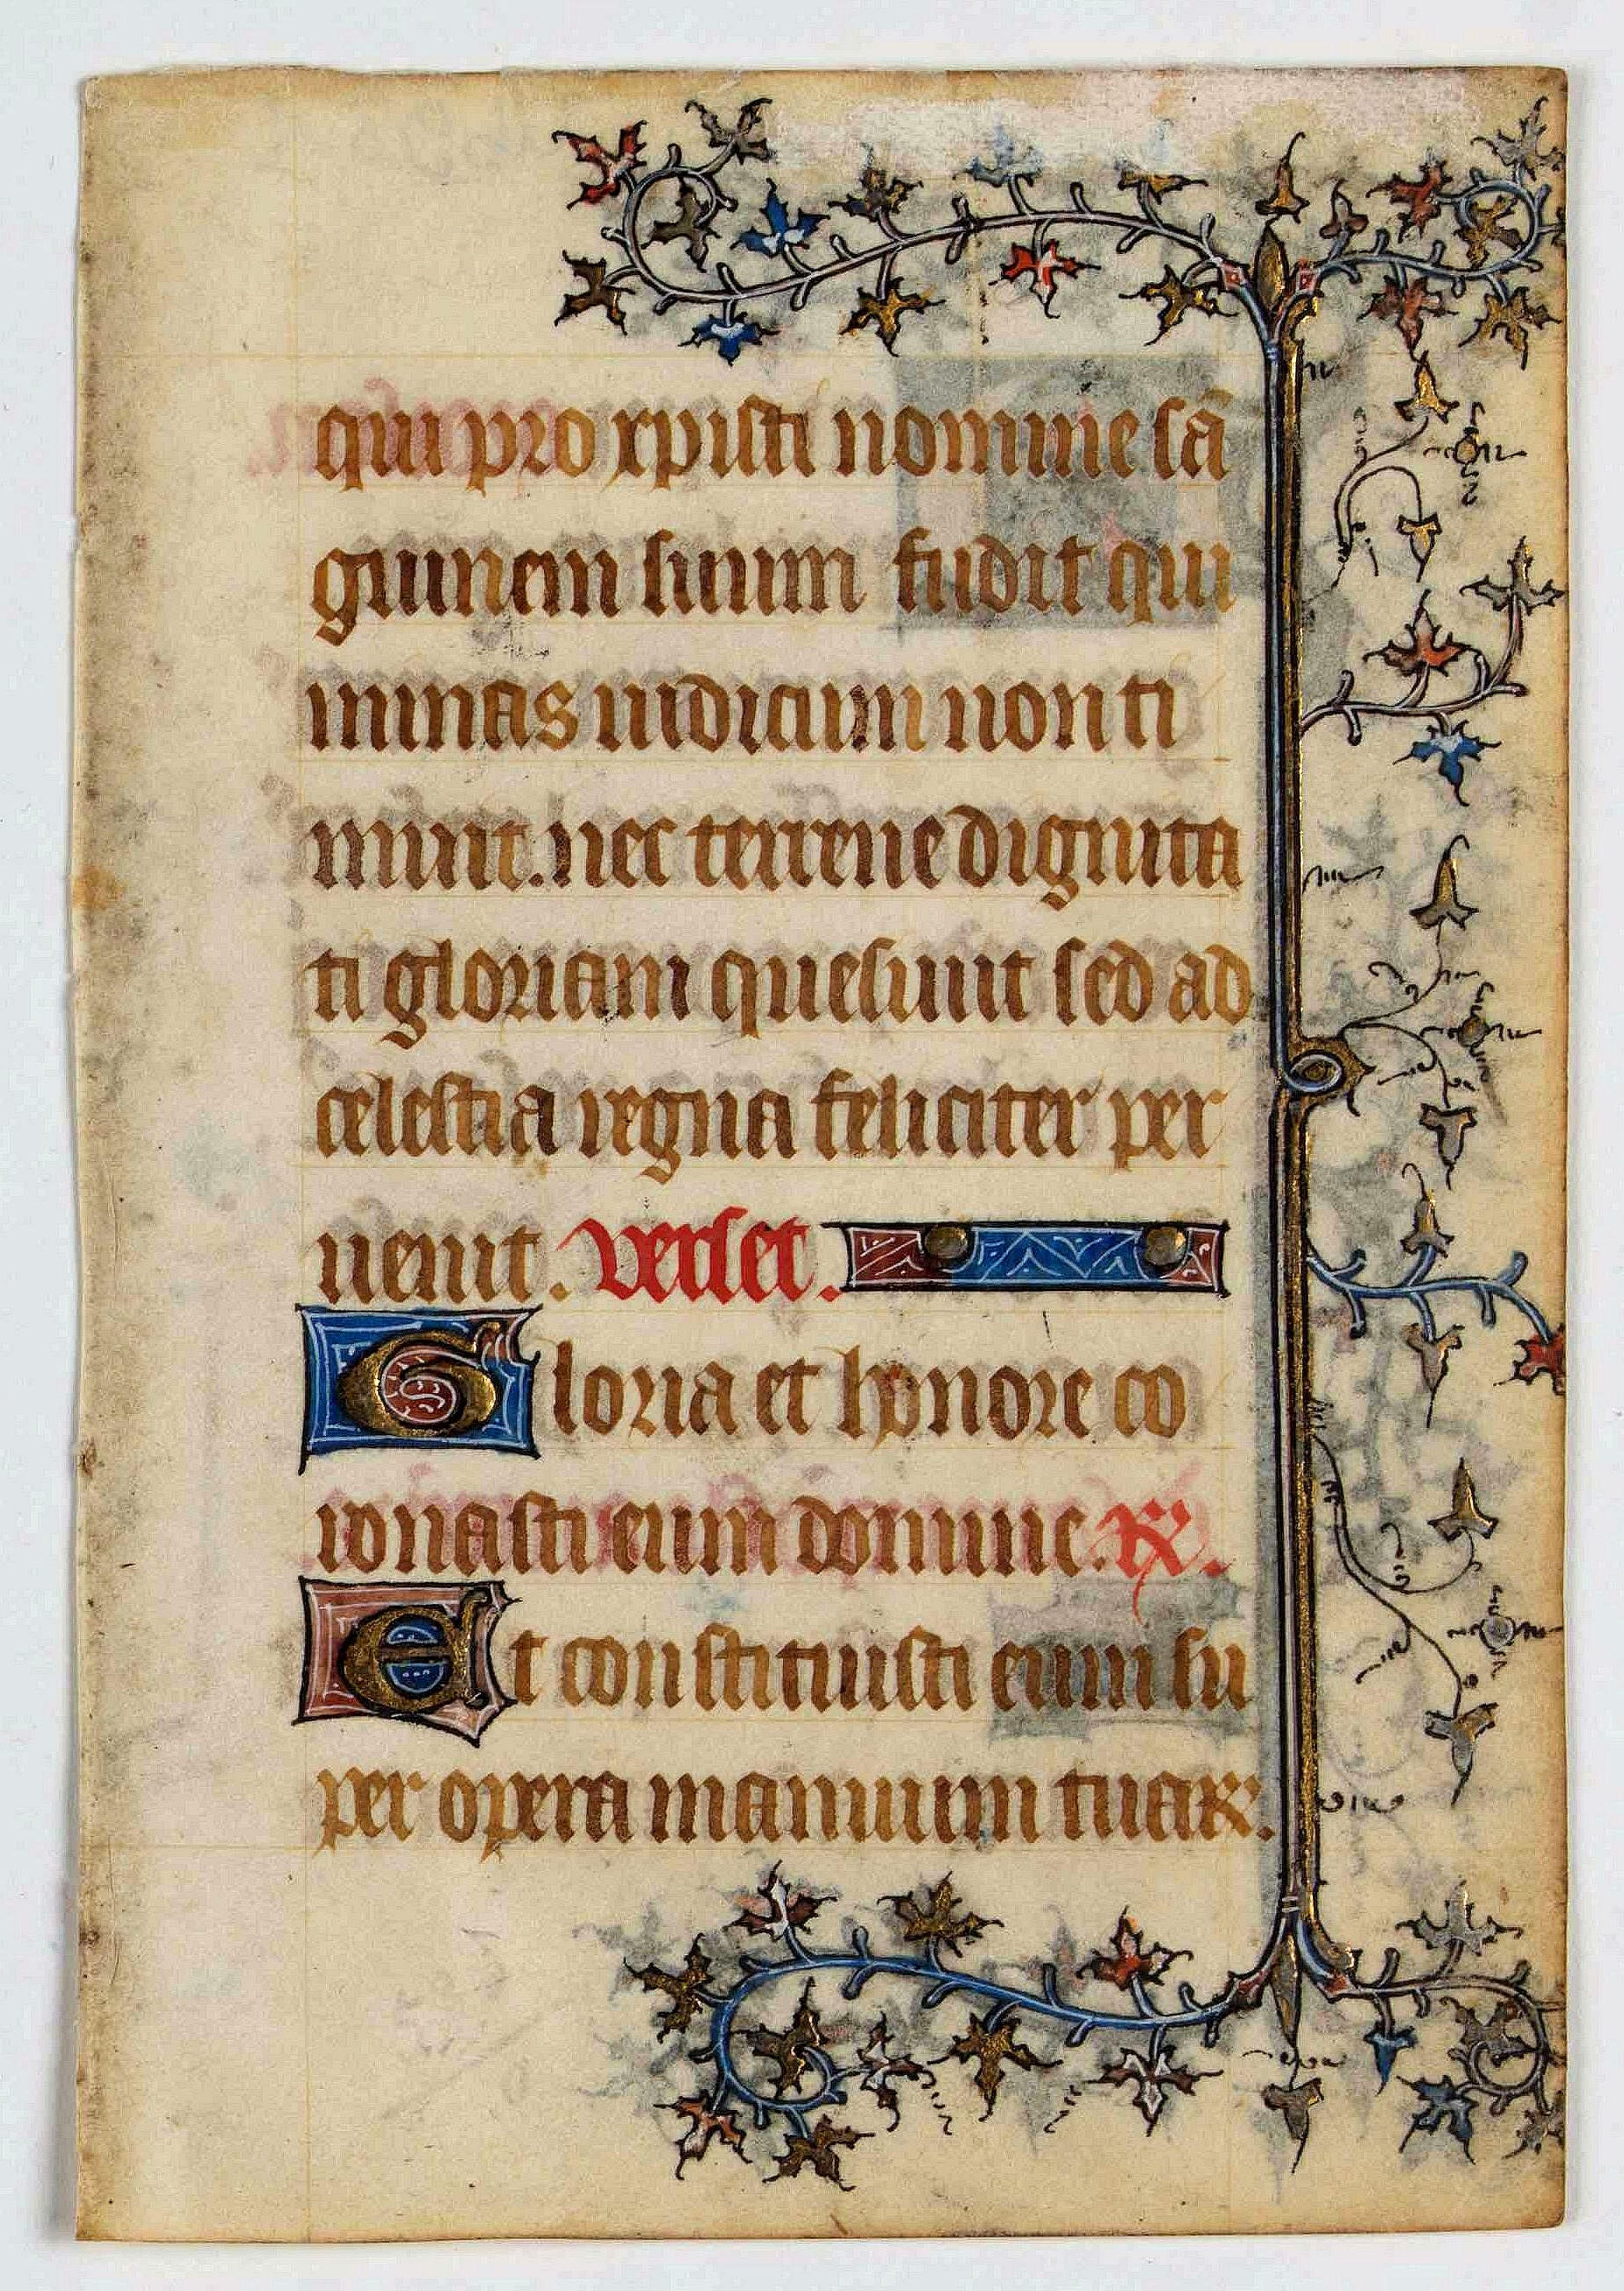 qui pro xpisti nomine sã
guinem suum fudit qui
minas iudicum non ti
muit. nec terrene dignita
ti gloriam quesiuit sed ad
celestia regna feliciter per
uenit. verset.
Gloria et honore co
ronasti eum domine. ℟.
Et constituisti eum su
per opera manuum tuaꝝ.